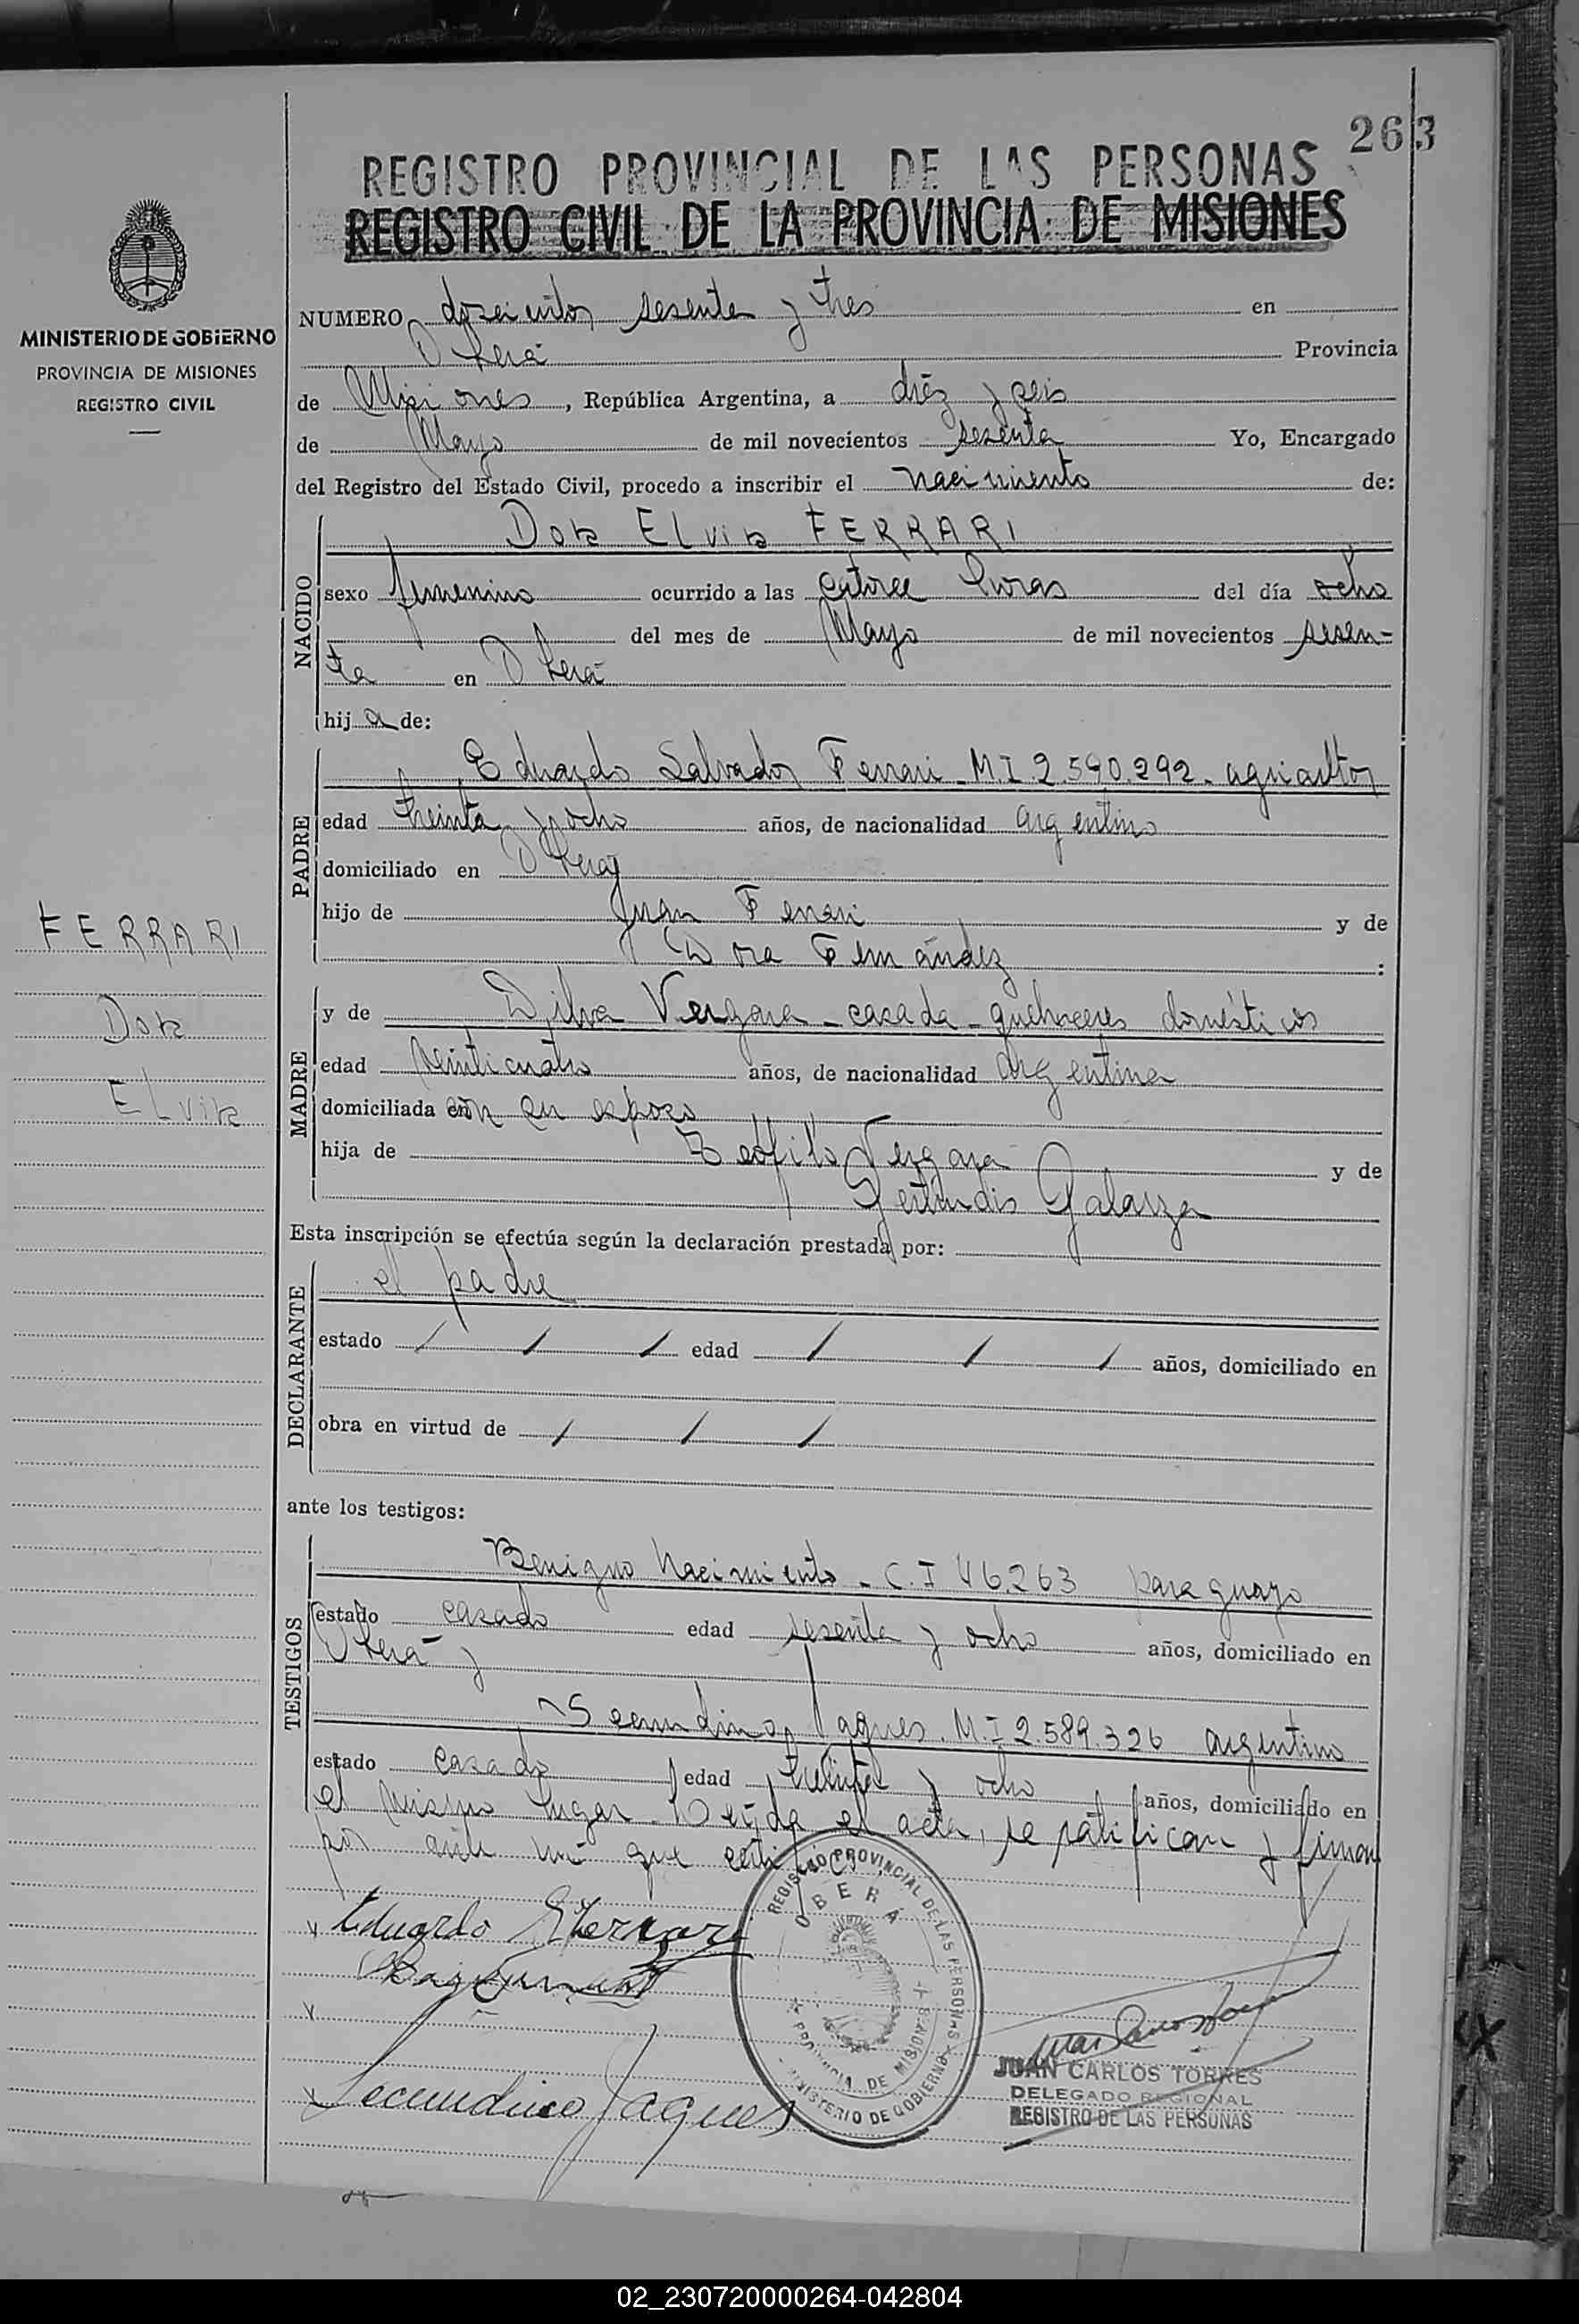 263
REGISTRO PROVINCIAL DE LAS PERSONAS
REGISTRO CIVIL DE LA PROVINCIA DE MISIONES
MINISTERIO DE GOBIERNO
PROVINCIA DE MISIONES
REGISTRO CIVIL
NUMERO doscientos sesenta y tres en
Oberá Provincia
de Misiones, República Argentina, a diez y seis
de Mayo de mil novecientos sesenta Yo, Encargado
del Registro del Estado Civil, procedo a inscribir el nacimiento de:
NACIDO
Dora Elvira FERRARI
sexo femenino ocurrido a las catorce horas del día ocho
del mes de Mayo de mil novecientos sesen-
ta en Oberá
hija de:
PADRE
Eduardo Salvador Ferrari - M.I 2.590.292 - agricultor
edad treinta y ocho años, de nacionalidad argentino
domiciliado en Oberá
hijo de Juan Ferrari y de
Dora Fernández :
FERRARI
Dora
Elvira
MADRE
y de Dilva Vergara - casada - quehaceres domésticos
edad veinticuatro años, de nacionalidad argentina
domiciliada con su esposo
hija de Teófilo Vergara y de
Gertrudis Galarza
Esta inscripción se efectúa según la declaración prestada por:
DECLARANTE
el padre
estado / / / edad / / / años, domiciliado en
obra en virtud de / / /
ante los testigos:
TESTIGOS
Benigno Nacimiento - C.I 46263 paraguayo
estado casado edad sesenta y ocho años, domiciliado en
Oberá y
Secundino Jaques. M.I 2.589.326 argentino
estado casado edad treinta y ocho años, domiciliado en
el mismo lugar. Leída el acta, se ratifican y firman
por ante mí que certifico
Eduardo S Ferrari
Secundino Jaques
REGISTRO PROVINCIAL DE LAS PERSONAS
OBERÁ
PROVINCIA DE MISIONES
MINISTERIO DE GOBIERNO
JUAN CARLOS TORRES
DELEGADO REGIONAL
REGISTRO DE LAS PERSONAS
02_230720000264-042804